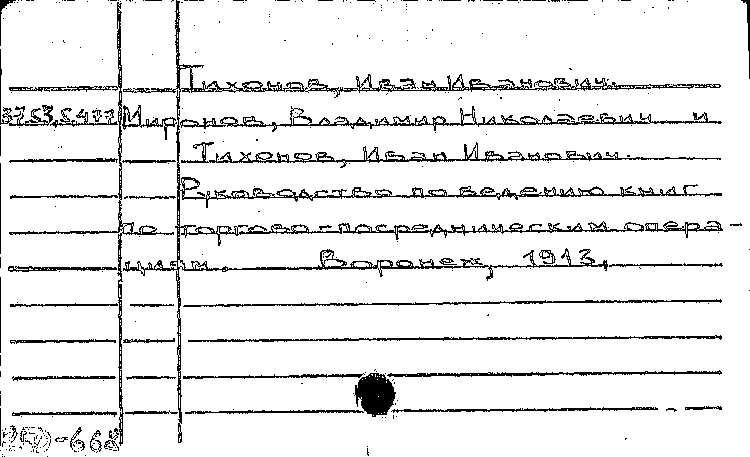 Тихонов, Иван Иванович.
Миронов, Владимир Николаевич и
Тихонов, Иван Иванович.
Руководство по ведению книг
по торгово-посредническим опера-
циям. Воронеж, 1913.
-668